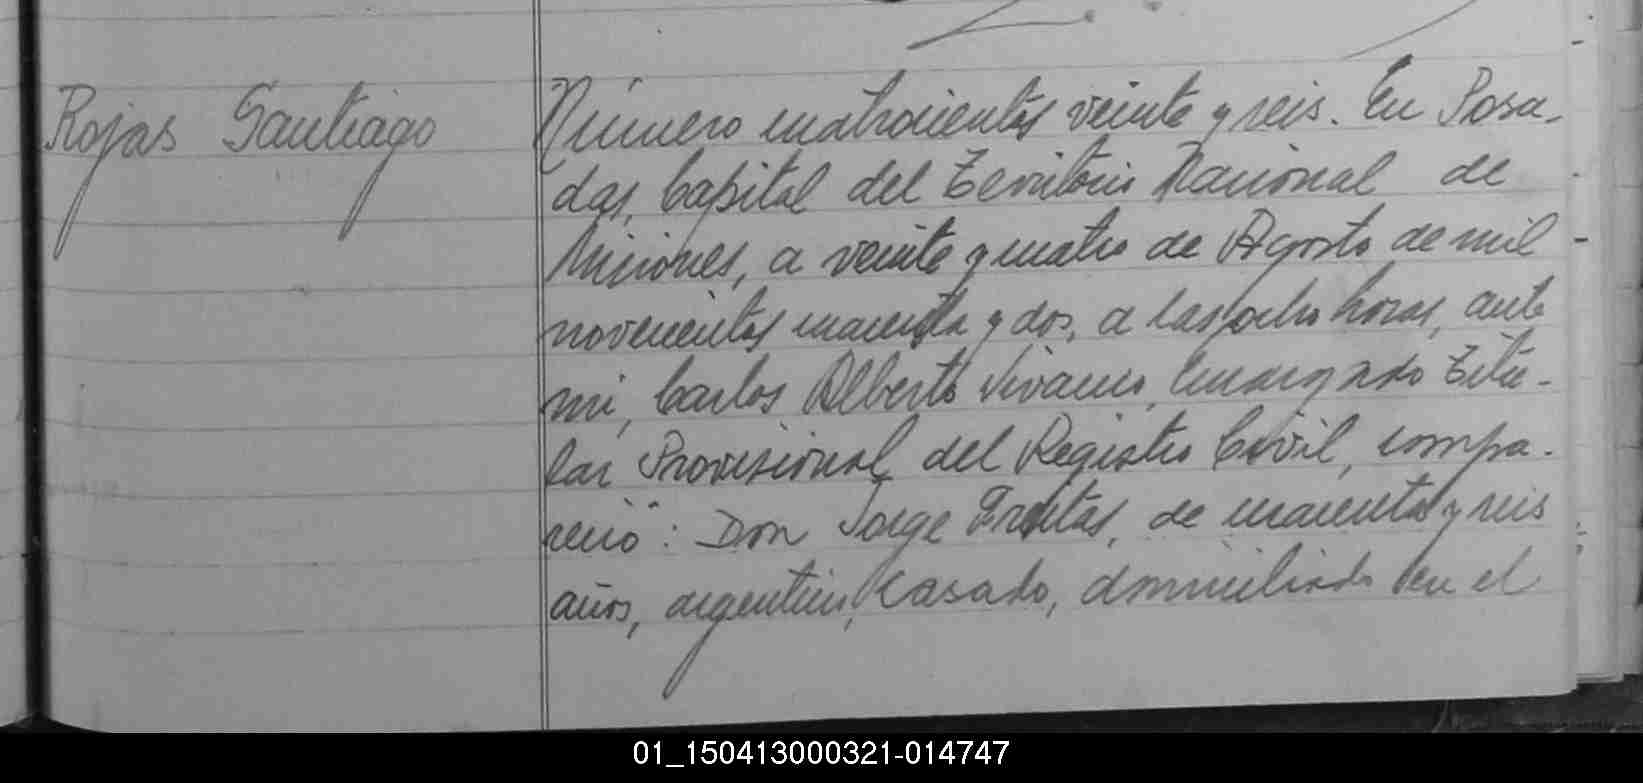 Rojas Santiago
Número cuatrocientos veinte y seis. En Posa-
das, Capital del Territorio Nacional de
Misiones, a veinte y cuatro de Agosto de mil
novecientos cuarenta y dos, a las ocho horas, ante
mi, Carlos Alberto Vivanco, Encargado Titu-
lar Provisional del Registro Civil, compa-
reció: Don Jorge Freitas, de cuarenta y seis
años, argentino, casado, domiciliado en el
01_150413000321-014747